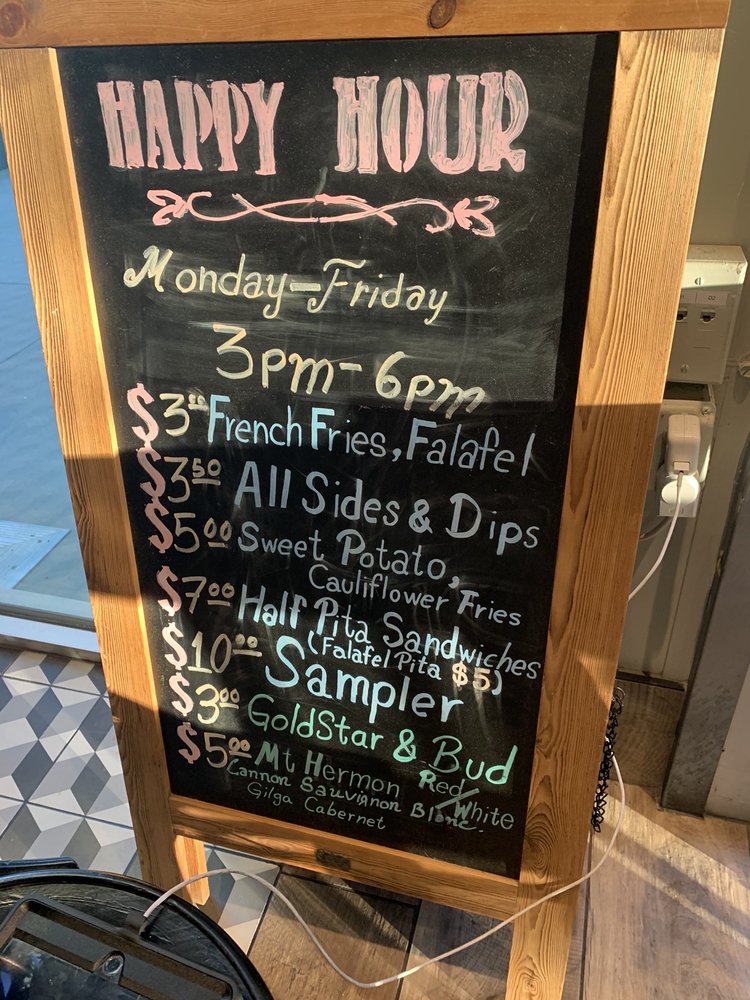 HAPPY HOUR
Monday-Friday
3pm-6pm
$3.00 French Fries, Falafel
$3.50 All Sides & Dips
$5.00 Sweet Potato,
Cauliflower Fries
$7.00 Half Pita Sandwiches
(Falafel Pita $5)
$10.00 Sampler
$3.00 GoldStar & Bud
$5.00 Mt Hermon Red/White
Cannon Sauvignon Blanc.
Gilga Cabernet